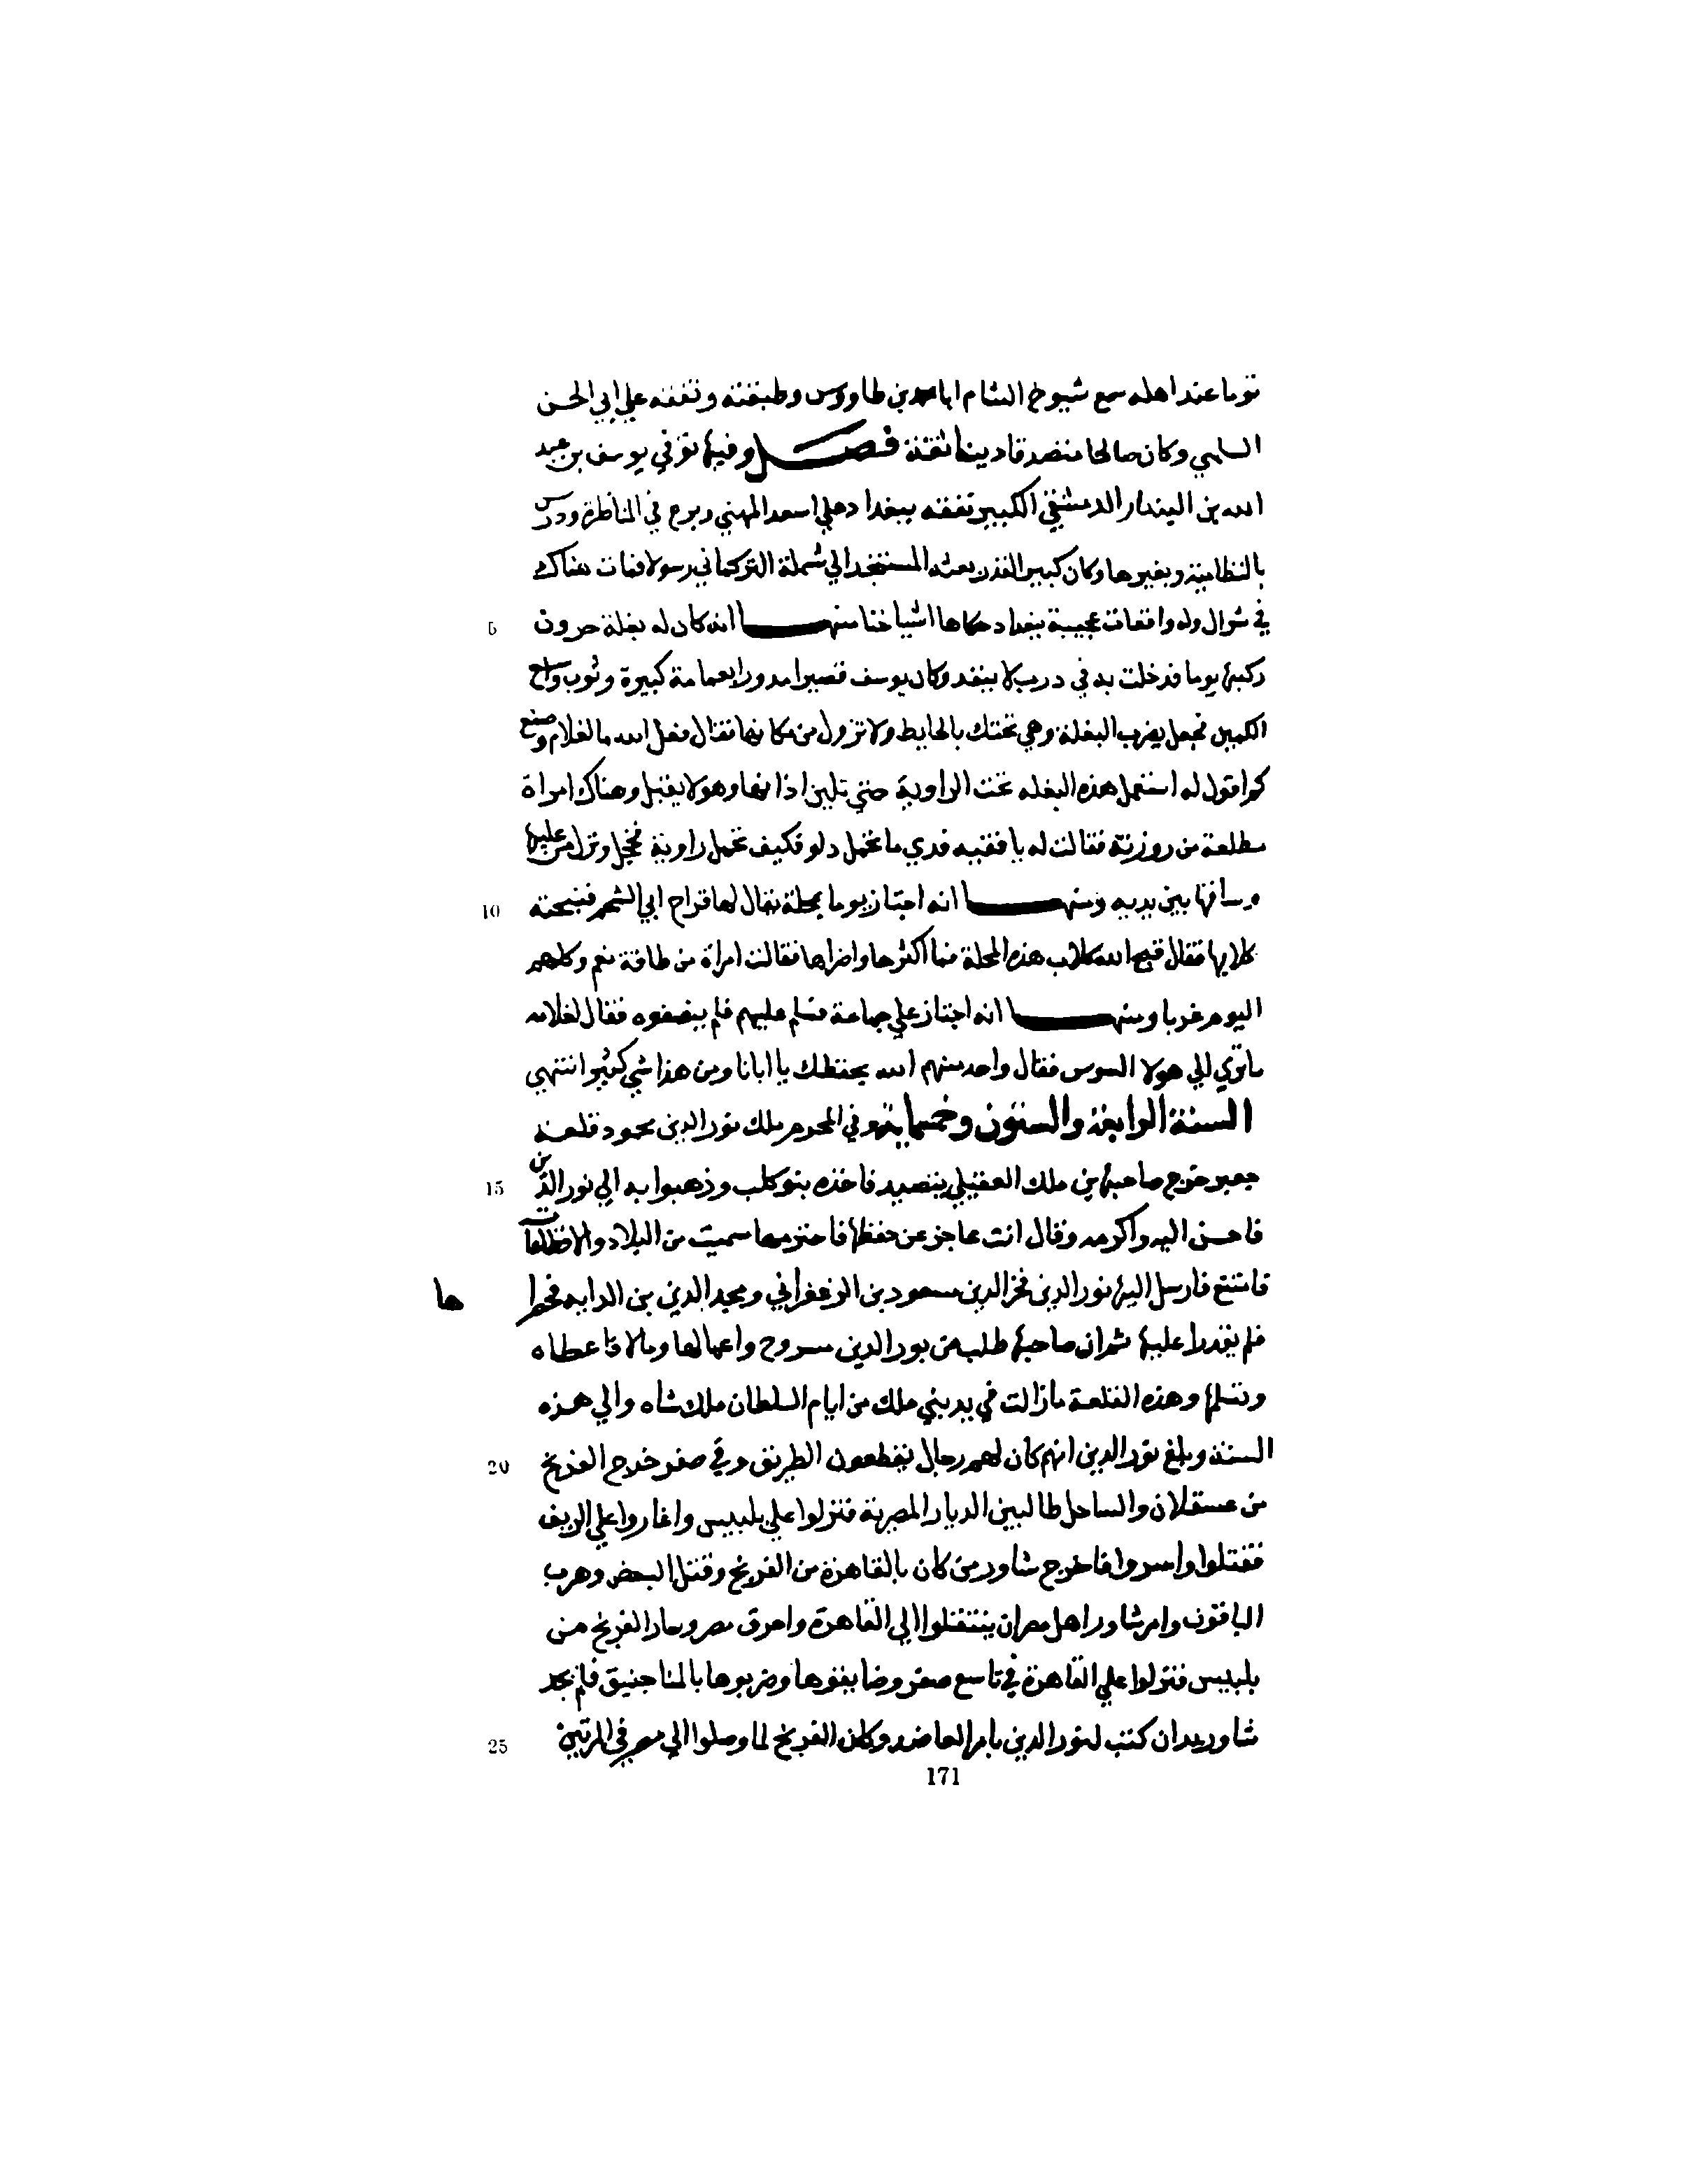 توما عند اهله سمع شيوخ الشام ابا محمد بن طاووس وطبقته وتفقه علي ابي الحسن
السلمي وكان صالحا متصدقا دينا ثقة فصل وفيها توفي يوسف بن عبد
الله بن البندار الدمشقي الكبير تفقه ببغداد علي اسعد المهني وبرع في المناظرة ودرس
بالنظامية وبغيرها وكان كبير القدر بعثه المستنجد الي شملة التركماني رسولا فمات هناك
في شوال وله واقعات عجيبة ببغداد حكاها اشياخنا منها انه كان له بغلة حرون
5
ركبها يوما فدخلت به في درب لا ينفد وكان يوسف قصيرا مدورا بعمامة كبيرة وثوب واسع
الكمين فجعل يضرب البغلة وهي تحتك بالحايط ولا تزول من مكانها فقال فعل الله بالغلام وصنع
كم اقول له استعمل هذه البغله تحت الراوية حتي تلين اذانها وهو لا يقبل وهناك امراة
مطلعة من روزنة فقالت له يا فقيه قدي ما تحمل دلو فكيف تحمل راوية فخجل ونزل من عليها
وساقها بين يديه ومنها انه اجتاز يوما بمحلة يقال لها قراح ابي الشحم فنبحته
10
كلابها فقال قبح الله كلاب هذه المحلة فما اكثرها واضراها فقالت امراة من طاقة نعم وكلهم
اليوم غربا ومنها انه اجتاز علي جماعة فسلم عليهم فلم ينصفوه فقال لغلامه
ما تري الي هولا السوس فقال واحد منهم الله يحفظك يا ابانا ومن هذا شي كثير انتهي
السنة الرابعة والستون وخمسماية وفي المحرم ملك نور الدين محمود قلعة
جعبر خرج صاحبها بن ملك العقيلي يتصيد فاخذه بنو كلب وذهبوا به الي نور الدين
15
فاحسن اليه واكرمه وقال انت عاجز عن حفظها فاختر مهما سميت من البلاد والاقطاعات
فامتنع فارسل اليها نور الدين فخر الدين مسعود بن الزعفراني ومجد الدين بن الدايه فحصرا
ها
فلم يقدرا عليها ثم ان صاحبها طلب من نور الدين سروج واعمالها ومالا فاعطاه
وتسلمها وهذه القلعة ما زالت في يد بني ملك من ايام السلطان ملك شاه والي هذه
السنة وبلغ نور الدين انهم كان لهم رجال يقطعون الطريق وفي صفر خرج الفرنج
20
من عسقلان والساحل طالبين الديار المصرية فنزلوا علي بلبيس واغاروا علي الريف
فقتلوا واسروا فاخرج شاور من كان بالقاهرة من الفرنج وقتل البعض وهرب
الباقون وامر شاور اهل مصر ان ينتقلوا الي القاهرة واحرق مصر وسار الفرنج من
بلبيس فنزلوا علي القاهرة في تاسع صفر وضايقوها وضربوها بالمناجنيق فلم يجد
شاور بدا ان كتب لنور الدين بامر العاضد وكان الفرنج لما وصلوا الي مصر في المرتين
25
171